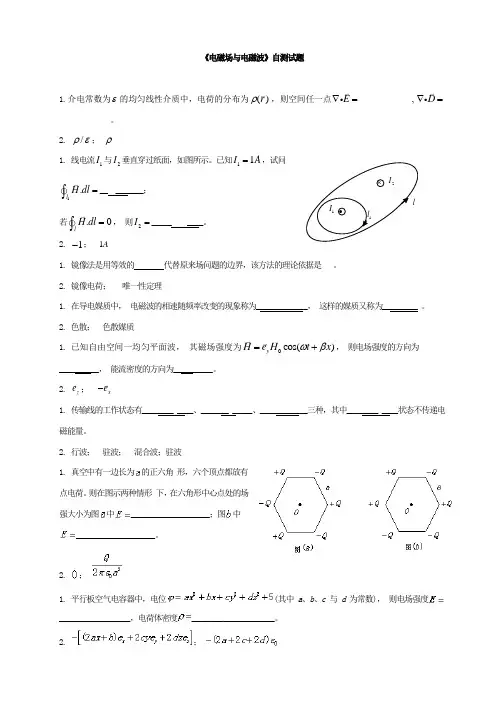 《电磁场与电磁波》自测试题
1.介电常数为ε的均匀线性介质中，电荷的分布为ρ(r)，则空间任一点∇•E=____________,∇•D=
________。
2. ρ/ε； ρ
1. 线电流I₁与I₂垂直穿过纸面，如图所示。已知I₁=1A，试问
∮_{l₁}H.dl=__ _______；
若∮_l H.dl=0， 则I₂=_____ ____。
2. −1； 1A
I₂
I₁
l₁
l
1. 镜像法是用等效的_______代替原来场问题的边界，该方法的理论依据是___。
2. 镜像电荷； 唯一性定理
1. 在导电媒质中， 电磁波的相速随频率改变的现象称为_____________， 这样的媒质又称为_________ 。
2. 色散； 色散媒质
1. 已知自由空间一均匀平面波， 其磁场强度为H=e_y H₀cos(ωt+βx)， 则电场强度的方向为
__________， 能流密度的方向为__________。
2. e_z； −e_x
1. 传输线的工作状态有________ ____、_______ _____、____________三种，其中________ ____状态不传递电
磁能量。
2. 行波； 驻波； 混合波；驻波
1. 真空中有一边长为a的正六角 形，六个顶点都放有
点电荷。则在图示两种情形 下，在六角形中心点处的场
强大小为图a中E=____________________；图b中
E=____________________。
+Q −Q
−Q a +Q
O
+Q −Q
图(a)
+Q −Q
+Q a −Q
O
−Q −Q
图(b)
2. 0； Q/2πε₀a²
1. 平行板空气电容器中，电位φ=ax²+bx+cy²+dz²+5(其中 a、b、c 与 d 为常数)， 则电场强度E=
__________________，电荷体密度ρ=_____________________。
2. −[(2ax+b)e_x+2cye_y+2dze_z]； −(2a+2c+2d)ε₀